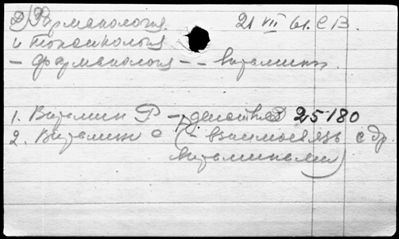 Фармакология 21 VII 61. СВ.
и токсикология
– фармакология – – витамины.
1. Витамин Р – действие 25180
2. Витамин С (взаимосвязь с др
витаминами)